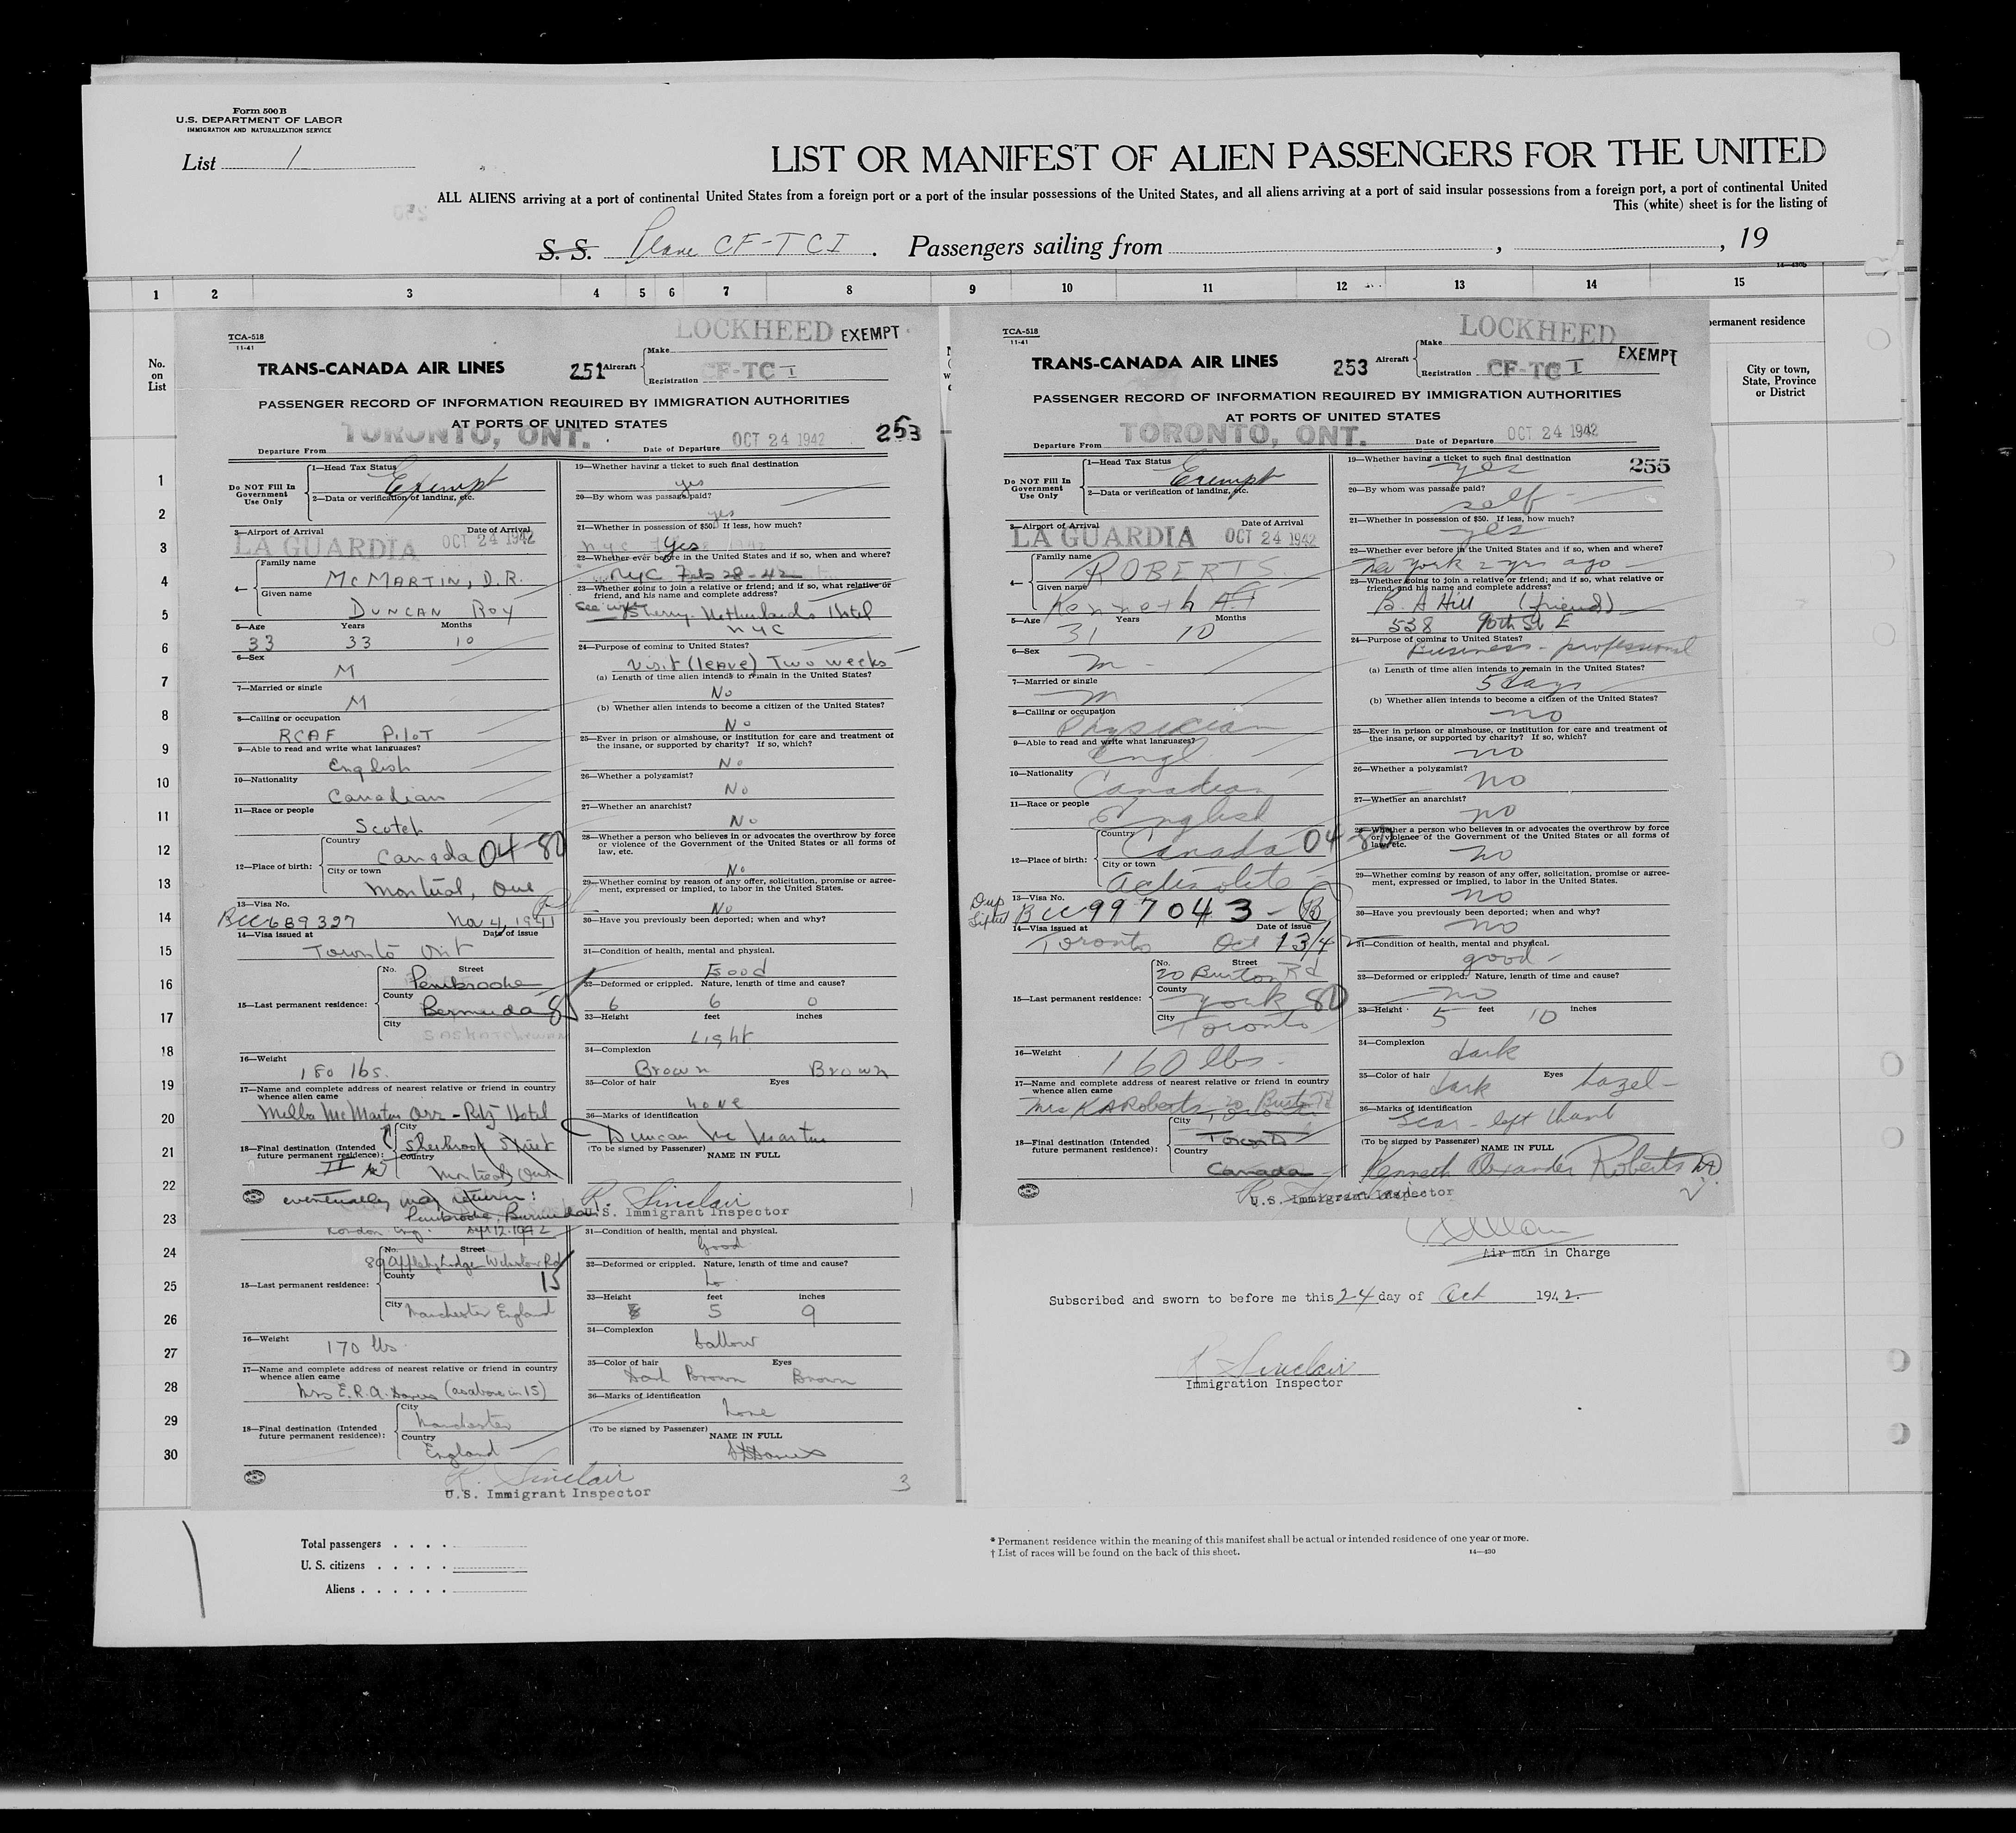 Form 500 B
U.S. DEPARTMENT OF LABOR
IMMIGRATION AND NATURALIZATION SERVICE
List 1
LIST OR MANIFEST OF ALIEN PASSENGERS FOR THE UNITED
ALL ALIENS arriving at a port of continental United States from a foreign port or a port of the insular possessions of the United States, and all aliens arriving at a port of said insular possessions from a foreign port, a port of continental United
This (white) sheet is for the listing of
S. S. Plane CF-TCI. Passengers sailing from , , 19
14—430b
1 2 3 4 5 6 7 8 9 10 11 12 13 14 15
No. on List
1
2
3
4
5
6
7
8
9
10
11
12
13
14
15
16
17
18
19
20
21
22
23
24
25
26
27
28
29
30
permanent residence
City or town, State, Province or District
TCA-518
11-41
LOCKHEED EXEMPT
TRANS-CANADA AIR LINES
251 Aircraft Make
Registration CF-TC I
PASSENGER RECORD OF INFORMATION REQUIRED BY IMMIGRATION AUTHORITIES
AT PORTS OF UNITED STATES
253
Departure From TORONTO, ONT. Date of Departure OCT 24 1942
Do NOT Fill In Government Use Only
1—Head Tax Status Exempt
2—Data or verification of landing, etc.
3—Airport of Arrival LA GUARDIA Date of Arrival OCT 24 1942
4— Family name McMARTIN, D.R.
Given name DUNCAN ROY
5—Age 33 Years 33 Months 10
6—Sex M
7—Married or single M
8—Calling or occupation RCAF Pilot
9—Able to read and write what languages? English
10—Nationality Canadian
11—Race or people Scotch
12—Place of birth: Country Canada 04-80
City or town Montreal, Que
13—Visa No. BCC689327 Nov 4, 1941
14—Visa issued at Toronto Ont Date of issue
15—Last permanent residence: No. Street Pembrooke
County Bermuda 85
City SASKATCHEWAN
16—Weight 180 lbs.
17—Name and complete address of nearest relative or friend in country whence alien came
Melba McMartin - Ritz Hotel
18—Final destination (Intended future permanent residence): City Sherbrook Street
Country Montreal, Que
eventually may return:
Pembrooke, Bermuda
19—Whether having a ticket to such final destination
yes
20—By whom was passage paid?
yes
21—Whether in possession of $50. If less, how much?
Yes
22—Whether ever before in the United States and if so, when and where?
NYC Feb 28-42
23—Whether going to join a relative or friend; and if so, what relative or friend, and his name and complete address?
See wife Sherry-Netherlands Hotel
NYC
24—Purpose of coming to United States?
Visit (leave) Two weeks
(a) Length of time alien intends to remain in the United States?
No
(b) Whether alien intends to become a citizen of the United States?
No
25—Ever in prison or almshouse, or institution for care and treatment of the insane, or supported by charity? If so, which?
No
26—Whether a polygamist?
No
27—Whether an anarchist?
No
28—Whether a person who believes in or advocates the overthrow by force or violence of the Government of the United States or all forms of law, etc.
No
29—Whether coming by reason of any offer, solicitation, promise or agreement, expressed or implied, to labor in the United States.
No
30—Have you previously been deported; when and why?
31—Condition of health, mental and physical.
Good
32—Deformed or crippled. Nature, length of time and cause?
6 6 0
33—Height feet inches
Light
34—Complexion
Brown Brown
35—Color of hair Eyes
None
36—Marks of identification
Duncan McMartin
(To be signed by Passenger) NAME IN FULL
R. Sinclair
U.S. Immigrant Inspector
1
London Eng. 12.1942
No. Street
89 Appleby Lodge Wilmslow Rd
15—Last permanent residence: County 15
City Manchester England
16—Weight 170 lbs.
17—Name and complete address of nearest relative or friend in country whence alien came
Mrs E.R.A. Davies (as above in 15)
18—Final destination (Intended future permanent residence): City Manchester
Country England
31—Condition of health, mental and physical.
Good
32—Deformed or crippled. Nature, length of time and cause?
No
33—Height feet inches
5 9
34—Complexion
Sallow
35—Color of hair Eyes
Dark Brown Brown
36—Marks of identification
None
(To be signed by Passenger) NAME IN FULL
R. Sinclair
U.S. Immigrant Inspector
3
TCA-518
11-41
LOCKHEED EXEMPT
TRANS-CANADA AIR LINES
253 Aircraft Make
Registration CF-TC I
PASSENGER RECORD OF INFORMATION REQUIRED BY IMMIGRATION AUTHORITIES
AT PORTS OF UNITED STATES
Departure From TORONTO, ONT. Date of Departure OCT 24 1942
255
Do NOT Fill In Government Use Only
1—Head Tax Status Exempt
2—Data or verification of landing, etc.
3—Airport of Arrival LA GUARDIA Date of Arrival OCT 24 1942
4— Family name ROBERTS
Given name Kenneth A.
5—Age 31 Years 10 Months
6—Sex m
7—Married or single m
8—Calling or occupation Physician
9—Able to read and write what languages? Engl
10—Nationality Canadian
11—Race or people English
12—Place of birth: Country Canada 04-80
City or town Actinolite
13—Visa No. BCC997043 - B
14—Visa issued at Toronto Date of issue Oct 13/42
15—Last permanent residence: No. Street 20 Burton Rd
County York 80
City Toronto
16—Weight 160 lbs.
17—Name and complete address of nearest relative or friend in country whence alien came
Mrs K A Roberts 20 Burton Rd
Toronto
18—Final destination (Intended future permanent residence): City Toronto
Country Canada
19—Whether having a ticket to such final destination
yes
20—By whom was passage paid?
self
21—Whether in possession of $50. If less, how much?
yes
22—Whether ever before in the United States and if so, when and where?
New York 2 yrs ago
23—Whether going to join a relative or friend; and if so, what relative or friend, and his name and complete address?
B. A Hill (friend)
538 90th St E
24—Purpose of coming to United States?
Business - professional
(a) Length of time alien intends to remain in the United States?
5 days
(b) Whether alien intends to become a citizen of the United States?
no
25—Ever in prison or almshouse, or institution for care and treatment of the insane, or supported by charity? If so, which?
no
26—Whether a polygamist?
no
27—Whether an anarchist?
no
28—Whether a person who believes in or advocates the overthrow by force or violence of the Government of the United States or all forms of law, etc.
no
29—Whether coming by reason of any offer, solicitation, promise or agreement, expressed or implied, to labor in the United States.
no
30—Have you previously been deported; when and why?
no
31—Condition of health, mental and physical.
good
32—Deformed or crippled. Nature, length of time and cause?
no
33—Height 5 feet 10 inches
34—Complexion dark
35—Color of hair dark Eyes hazel
36—Marks of identification
Scar - left thumb
(To be signed by Passenger) NAME IN FULL
Kenneth Alexander Roberts
U.S. Immigrant Inspector
Air man in Charge
Subscribed and sworn to before me this 24 day of Oct 1942
R. Sinclair
Immigration Inspector
Total passengers . . . .
U. S. citizens . . . . .
Aliens . . . . . .
* Permanent residence within the meaning of this manifest shall be actual or intended residence of one year or more.
† List of races will be found on the back of this sheet.
14—430